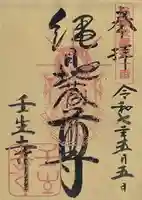 奉拝
令和七年五月五日
縄目地蔵尊
壬生寺